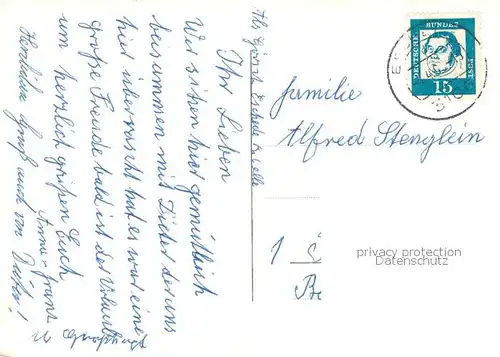 Ihr Lieben
Wir sitzen hier gemütlich
beisammen mit Dieter der uns
hier überrascht hat es war eine
große Freude bald ist der Urlaub
um herzlich grüßen Euch
Anna + Franz
Herzliche Grüße auch von Dieter!
Familie
Alfred Stenglein
1
DEUTSCHE
BUNDES
POST
15
privacy protection
Datenschutz